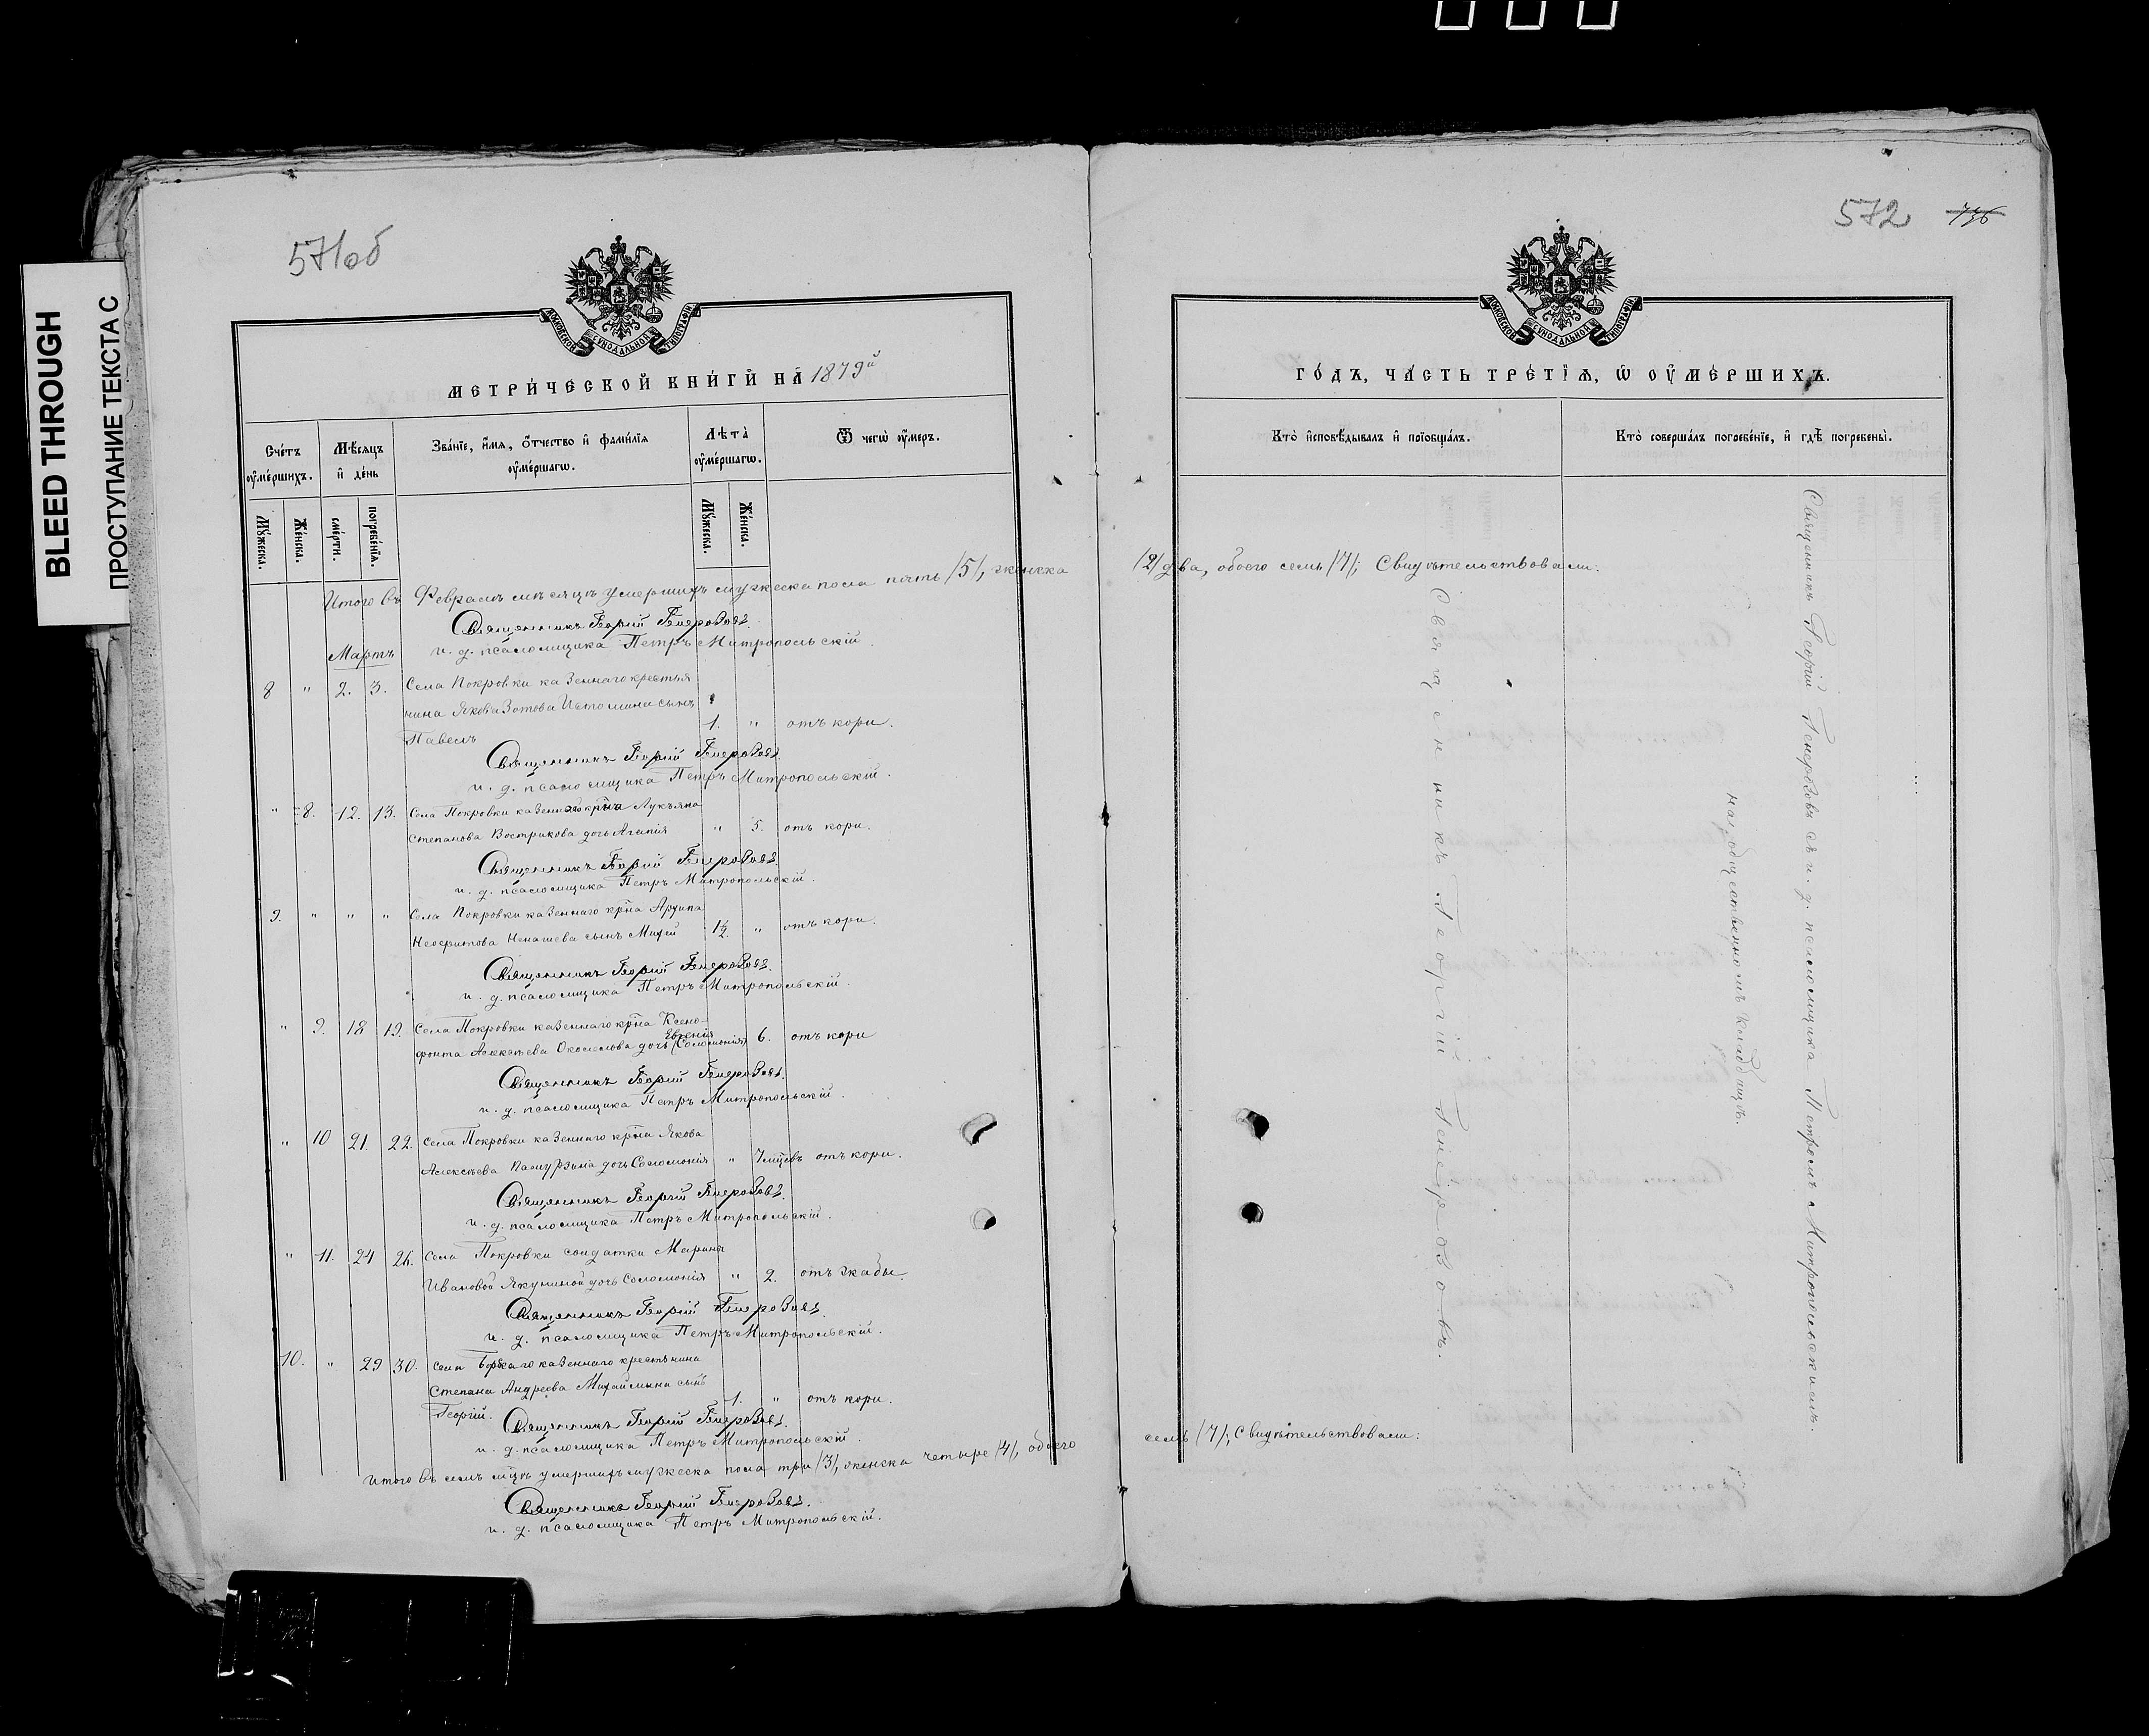 BLEED THROUGH
ПРОСТУПАНИЕ ТЕКСТА С
571об
МОСКОВСКОЙ СѴНОДАЛЬНОЙ ТИПОГРАФІИ
МЕТРИ́ЧЕСКОЙ КНИ́ГИ НА 1879й
Сче́тъ оу҆ме́ршихъ.
Мѣ́сяцъ и҆ де́нь
Зва́нїе, и҆́мя, ѻ҆́тчество и҆ фами́лїя оу҆ме́ршагѡ.
Лѣта̀ оу҆ме́ршагѡ.
Ѿ чегѡ̀ оу҆́меръ.
Мꙋ́жеска.
Же́нска.
сме́рти.
погребе́нїя.
Мꙋ́жеска.
Же́нска.
Итого въ Февралѣ мѣсяцѣ умершихъ мужеска пола пять /5/, женска
Священникъ Георгій
и. д. псаломщика Петръ Митропольскій.
Мартъ
8 " 2. 3. Села Покровки казеннаго крестья
нина Якова Зотова Истомина сынъ
Павелъ 1. " отъ кори.
Священникъ Георгій
и. д. псаломщика Петръ Митропольскій.
" 8. 12. 13. Села Покровки казеннаго крн̃а Лукъяна
Степанова Вострикова дочь Агапія " 5. отъ кори.
Священникъ Георгій
и. д. псаломщика Петръ Митропольскій.
9. " " " Села Покровки казеннаго крн̃а Архипа
Неофитова Ненашева сынъ Михей 1½. " отъ кори.
Священникъ Георгій
и. д. псаломщика Петръ Митропольскій.
" 9. 18 19. Села Покровки казеннаго крн̃а Ксено-
фонта Алексѣева дочь Евгенія (Соломонія) 6. отъ кори
Священникъ Георгій
и. д. псаломщика Петръ Митропольскій.
" 10 21. 22. Села Покровки казеннаго крн̃а Якова
Алексѣева дочь Соломонія " 7 мцевъ отъ кори.
Священникъ Георгій
и. д. псаломщика Петръ Митропольскій.
" 11. 24 26. Села Покровки солдатки Марины
Ивановой Якуниной дочь Соломонія " 2. отъ жабы.
Священникъ Георгій
и. д. псаломщика Петръ Митропольскій.
10. " 29 30. казеннаго крестьнина
Степана Андреова сынъ
Георгій. 1. " отъ кори.
Священникъ Георгій
и. д. псаломщика Петръ Митропольскій.
Итого въ семъ мц̃ѣ умершихъ мужеска пола три /3/, женска четыре /4/, обоего
Священникъ Георгій
и. д. псаломщика Петръ Митропольскій.
572 736
МОСКОВСКОЙ СѴНОДАЛЬНОЙ ТИПОГРАФІИ
ГО́ДЪ, ЧА́СТЬ ТРЕ́ТЇЯ, Ѡ҆ ОУ҆МЕ́РШИХЪ.
Кто̀ и҆сповѣ́дывалъ и҆ прїобща́лъ.
Кто̀ соверша́лъ погребе́нїе, и҆ гдѣ̀ погребены̀.
/2/ два, обоего семь /7/; Свидѣтельствовали:
Священникъ Георгій
Священникъ Георгій съ и. д. псаломщика Петромъ Митропольскимъ.
на общественномъ кладбищѣ.
семь /7/; Свидѣтельствовали: